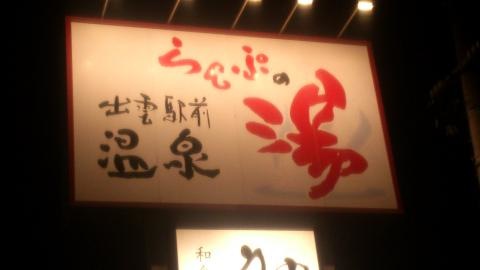 らんぷの
湯
出雲駅前
温泉
和